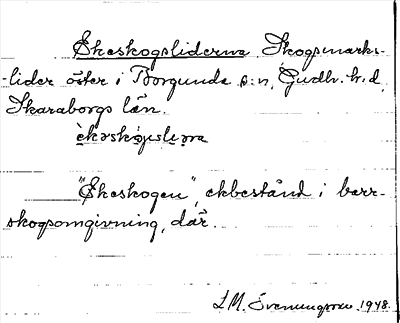 Ekeskogsliderna Skogsmarks-
-lider öster i Borgunda s:n, Gudh. h:d,
Skaraborgs län.
"Ekeskogen", ekbestånd i barr-
skogsomgivning, där.
S.M. Svenungsson 1948.